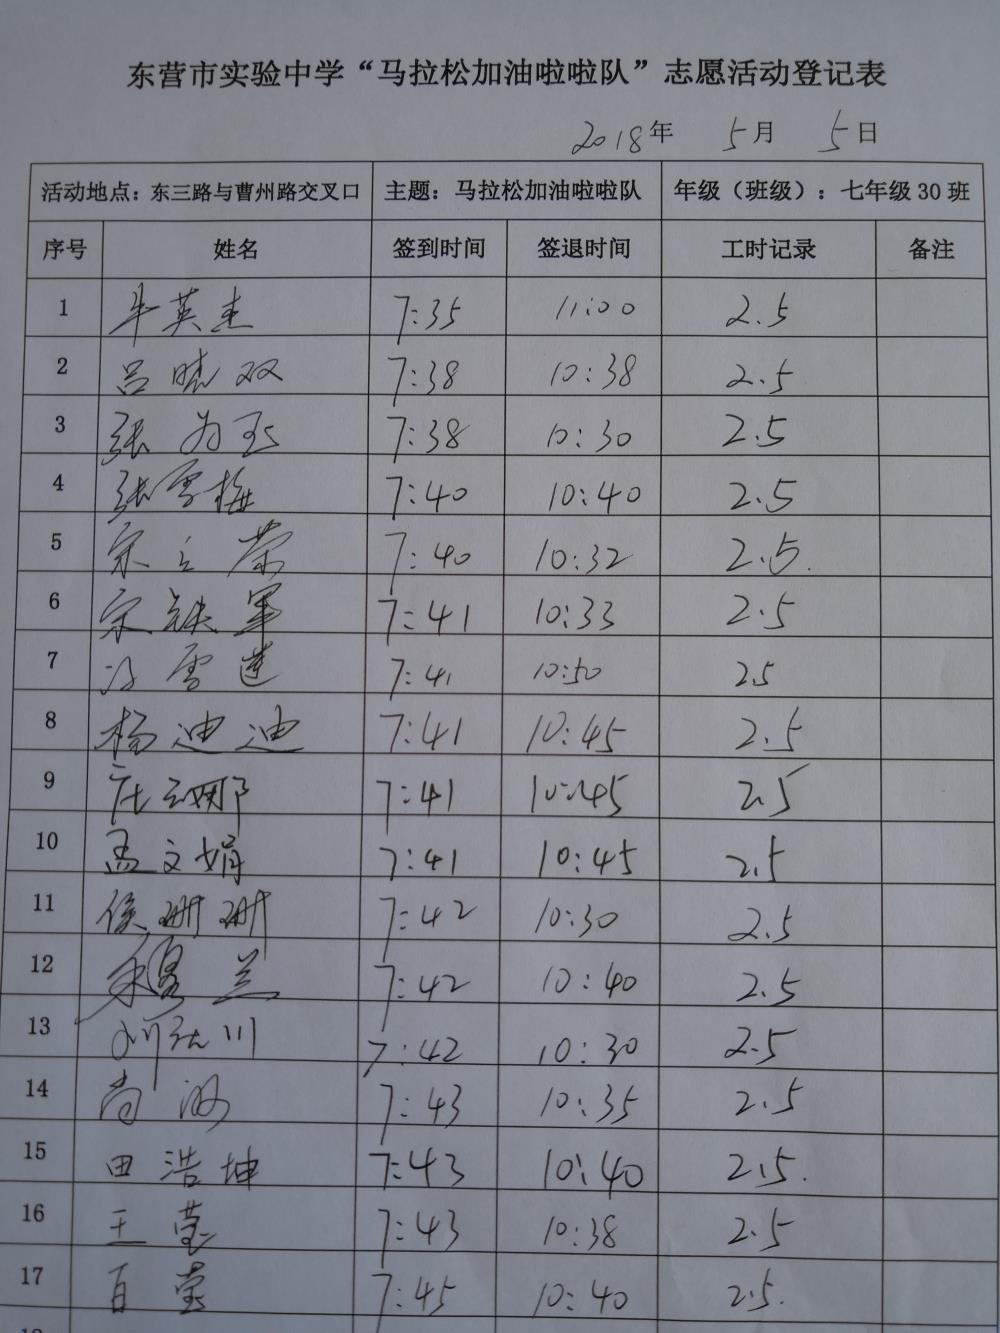 东营市实验中学“马拉松加油啦啦队”志愿活动登记表
2018年 5月 5日
活动地点：东三路与曹州路交叉口 主题：马拉松加油啦啦队 年级（班级）：七年级30班
序号 姓名 签到时间 签退时间 工时记录 备注
1 牛英杰 7:35 11:00 2.5
2 吕晓双 7:38 10:38 2.5
3 张为玉 7:38 10:30 2.5
4 张雪梅 7:40 10:40 2.5
5 宋立荣 7:40 10:32 2.5.
6 宋铁军 7:41 10:33 2.5
7 冯雪莲 7:41 10:50 2.5
8 杨迪迪 7:41 10:45 2.5
9 庄娜 7:41 10:45 2.5
10 孟文娟 7:41 10:45 2.5
11 侯珊珊 7:42 10:30 2.5
12 兰 7:42 10:40 2.5
13 川 7:42 10:30 2.5
14 尚 7:43 10:35 2.5
15 田浩坤 7:43 10:40 2.5.
16 王莹 7:43 10:38 2.5
17 百莹 7:45 10:40 2.5.